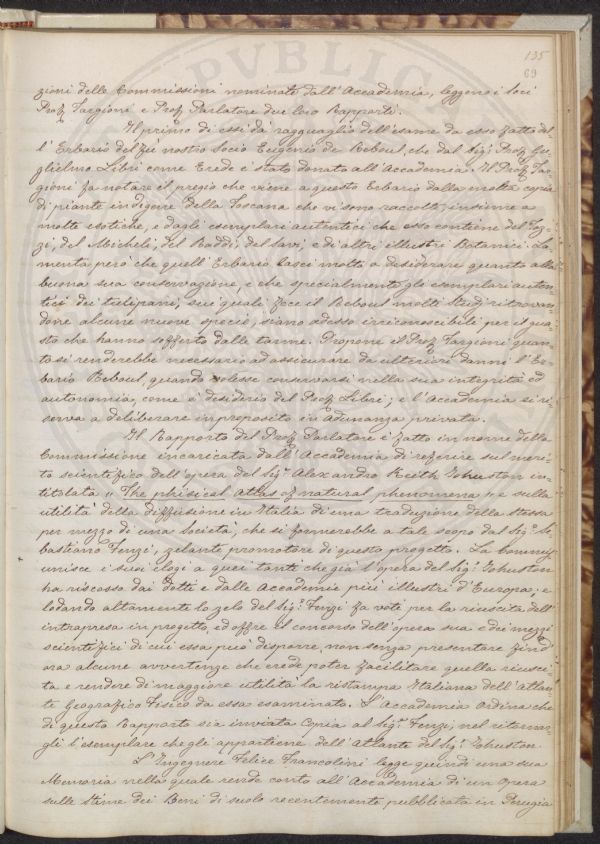 135
69
zioni delle Commissioni nominate dall'Accademia, leggono i Soci
Prof Targioni e Prof Parlatore due loro Rapporti.
Il primo di essi dà ragguaglio dell'esame da esso fatto del
l'Erbario del fù nostro Socio Eugenio de Reboul, che dal Sigr Prof Gu
glielmo Libri come Erede è stato donato all'Accademia. Il Prof Tar
gioni fa notare il pregio che viene a questo Erbario dalla molta copia
di piante indigene della Toscana che vi sono raccolte, insieme a
molte esotiche, e dagli esemplari autentici che esso contiene del Toz
zi, del Micheli, del Raddi, del Savi, e di altri illustri Botanici. La
menta però che quell'Erbario lasci molto a desiderare quanto alla
buona sua conservazione, e che specialmente gli esemplari auten
tici dei tulipani, sui quali fece il Reboul molti studi ritrovan
done alcune nuove specie, siano adesso irriconoscibili per il gua
sto che hanno sofferto dalle tarme. Propone il Prof Targioni quan
to si renderebbe necessario ad assicurare da ulteriori danni l'Er
bario Reboul, quando volesse conservarsi nella sua integrità ed
autonomia, come è desiderio del Prof Libri; e l'Accademia si ri
serva a deliberare in proposito in adunanza privata.
Il Rapporto del Prof Parlatore è fatto in nome della
Commissione incaricata dall'Accademia di referire sul meri
to scientifico dell'opera del Sigr Alexandro Keith Johuston in
titolata „ The phisical Atlas of natural phenomena „ e sulla
utilità della diffusione in Italia di una traduzione della stessa
per mezzo di una Società, che si formerebbe a tale scopo dal Sigr Se
bastiano Fenzi, zelante promotore di questo progetto. La Commiss
unisce i suoi elogi a quei tanti che già l'opera del Sigr Johuston
ha riscosso dai Dotti e dalle Accademie più illustri d'Europa; e
lodando altamente lo zelo del Sigr Fenzi fa voti per la riuscita dell'
intrapresa in progetto, ed offre il concorso dell'opera sua e dei mezzi
scientifici di cui essa può disporre, non senza presentare find'
ora alcune avvertenze che crede poter facilitare quella riusci
ta e rendere di maggiore utilità la ristampa Italiana dell'Atlan
te Geografico Fisico da essa esaminato. L'Accademia ordina che
di questo Rapporto sia inviata Copia al Sigr Fenzi, nel ritornar
gli l'esemplare che gli appartiene dell'Atlante del Sigr Johuston
L'Ingegnere Felice Francolini legge quindi una sua
Memoria nella quale rende conto all'Accademia di un Opera
sulle stime dei Beni di suolo recentemente pubblicata in Perugia